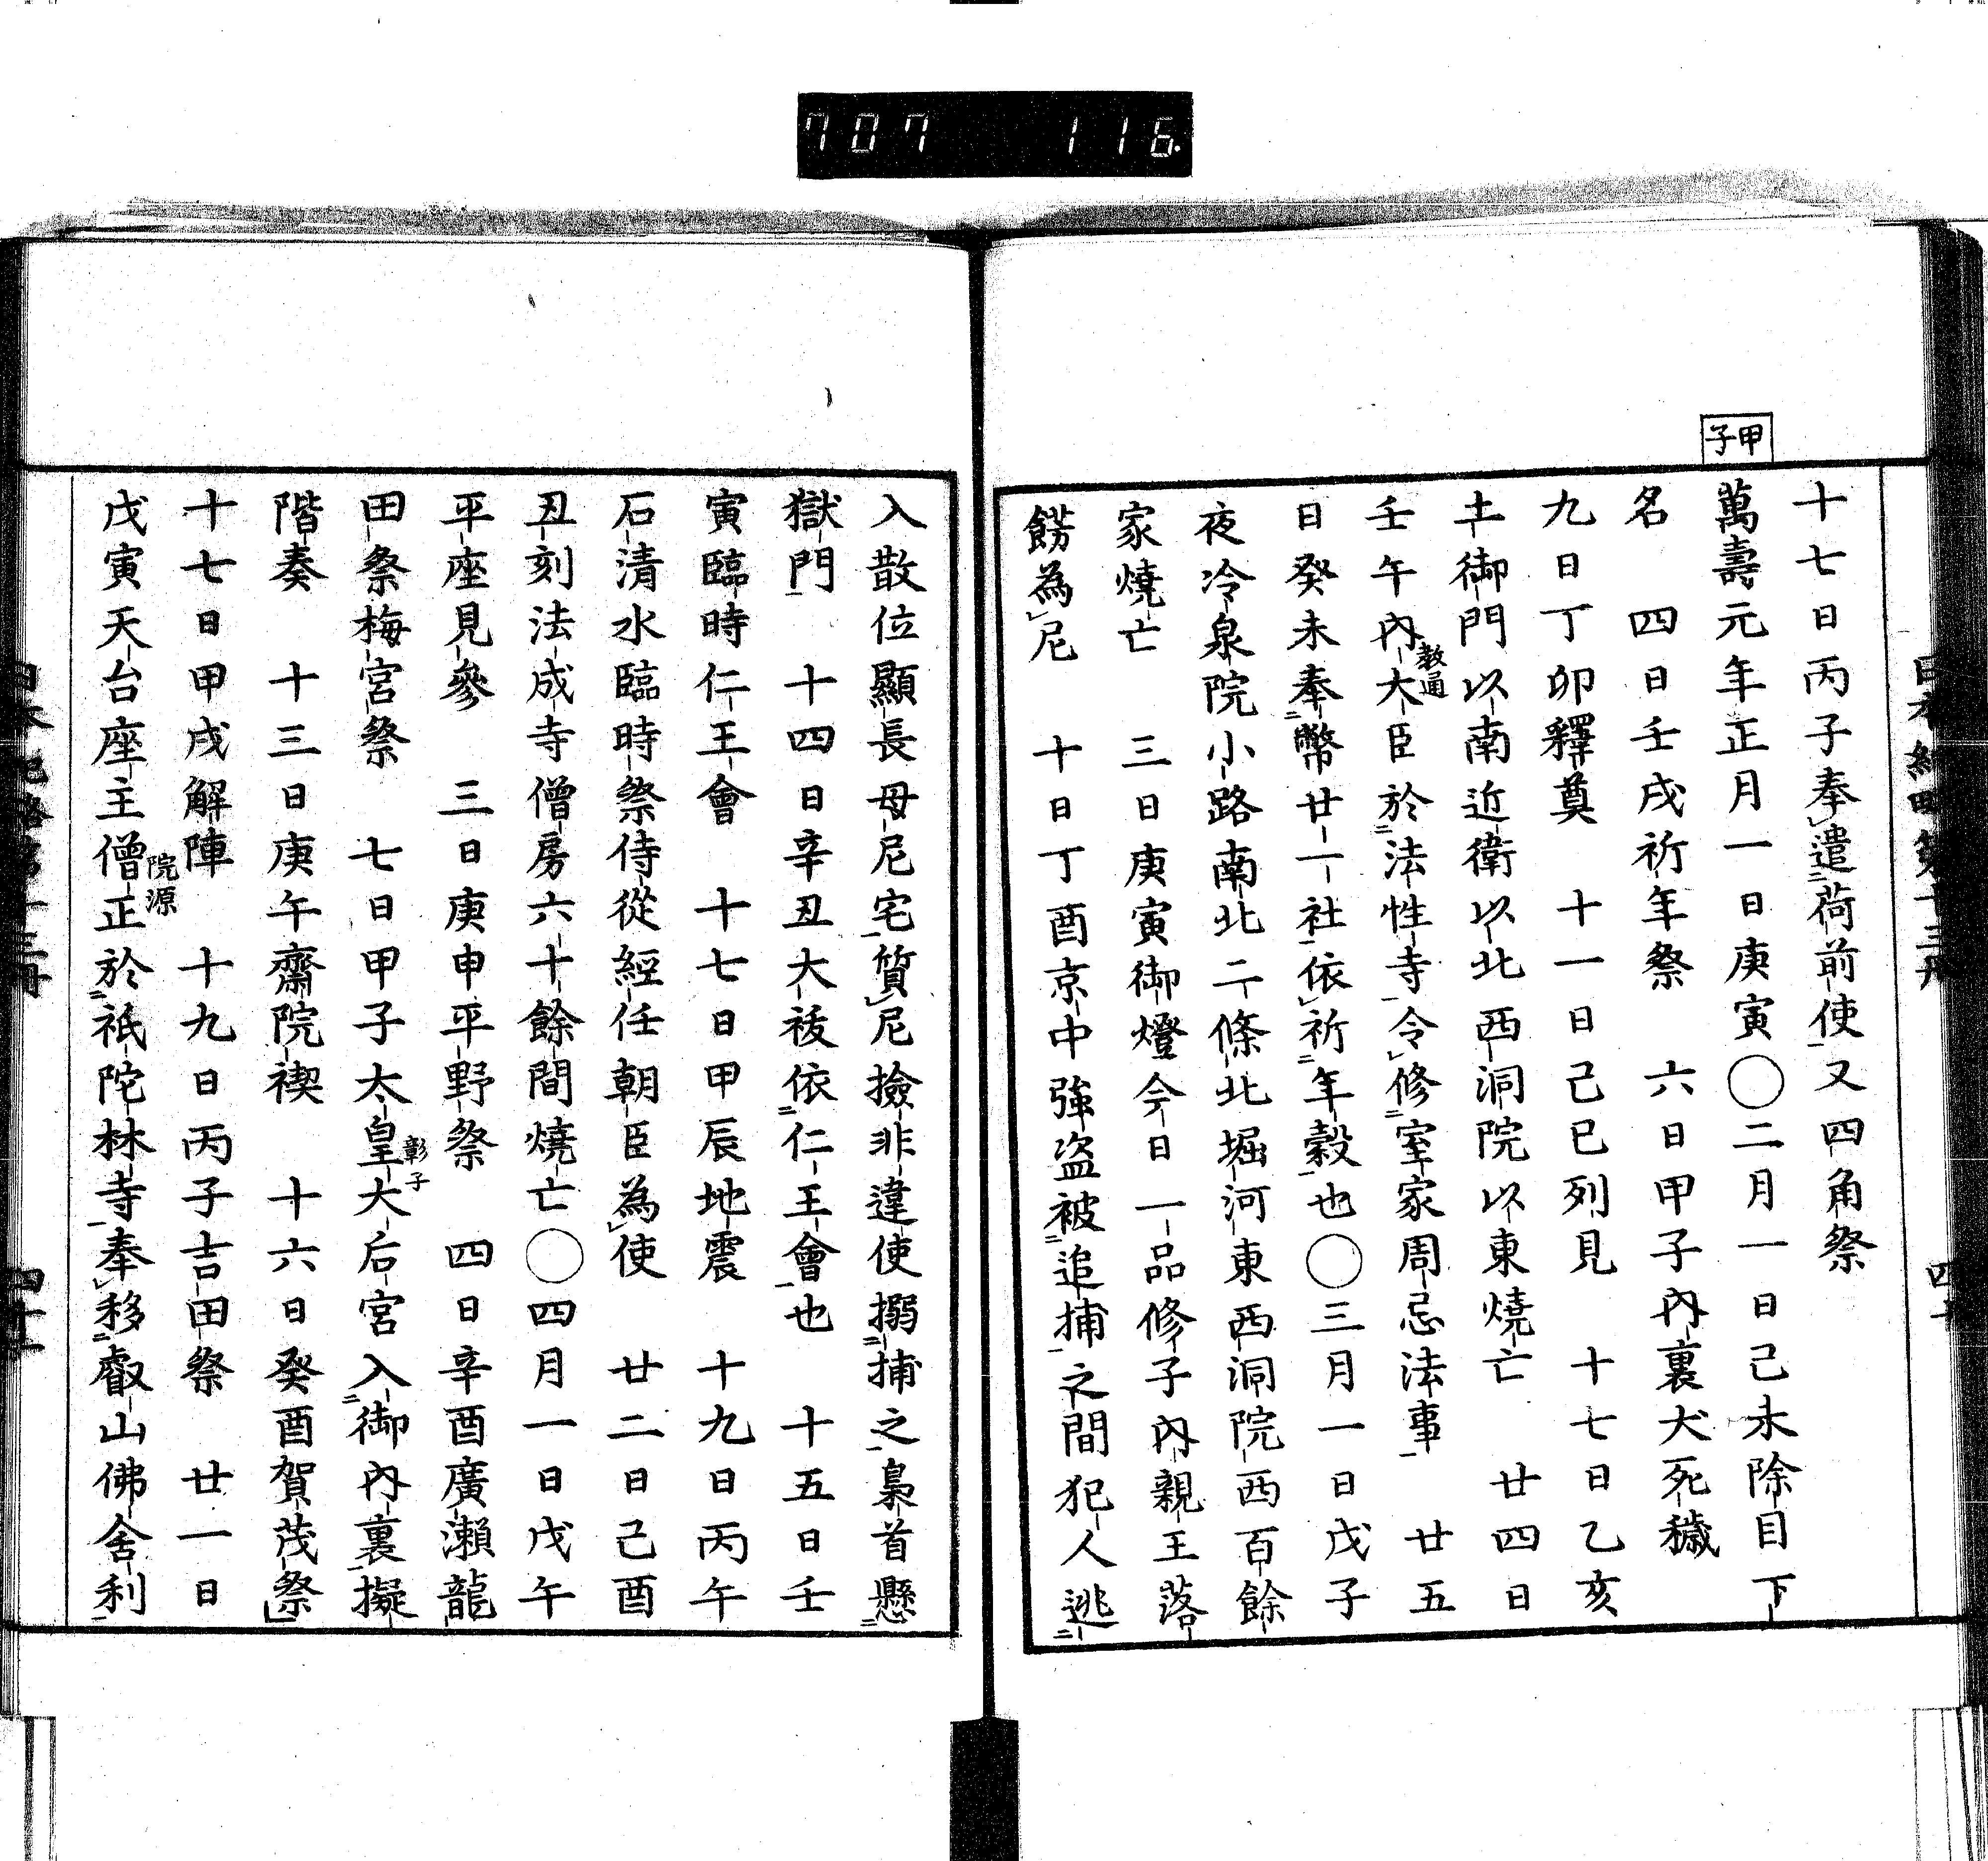 707 116.
甲子
十七日丙子奉遣荷前使又四角祭
萬壽元年正月一日庚寅〇二月一日己未除目下
名　四日壬戌祈年祭　六日甲子內裏犬死穢
九日丁卯釋奠　十一日己巳列見　十七日乙亥
土御門以南近衛以北西洞院以東燒亡　廿四日
壬午內大臣教通於法性寺令修室家周忌法事　廿五
日癸未奉幣廿一社依祈年穀也〇三月一日戊子
夜冷泉院小路南北二條北堀河東西洞院西百餘
家燒亡　三日庚寅御燈今日一品修子內親王落
餝為尼　十日丁酉京中強盜被追捕之間犯人逃
入散位顯長母尼宅質尼撿非違使搦捕之梟首懸
獄門　十四日辛丑大祓依仁王會也　十五日壬
寅臨時仁王會　十七日甲辰地震　十九日丙午
石清水臨時祭侍從經任朝臣為使　廿二日己酉
丑刻法成寺僧房六十餘間燒亡〇四月一日戊午
平座見參　三日庚申平野祭　四日辛酉廣瀨龍
田祭梅宮祭　七日甲子太皇大后宮彰子入御內裏擬
階奏　十三日庚午齋院禊　十六日癸酉賀茂祭
十七日甲戌解陣　十九日丙子吉田祭　廿一日
戊寅天台座主僧正院源於祇陀林寺奉移叡山佛舍利